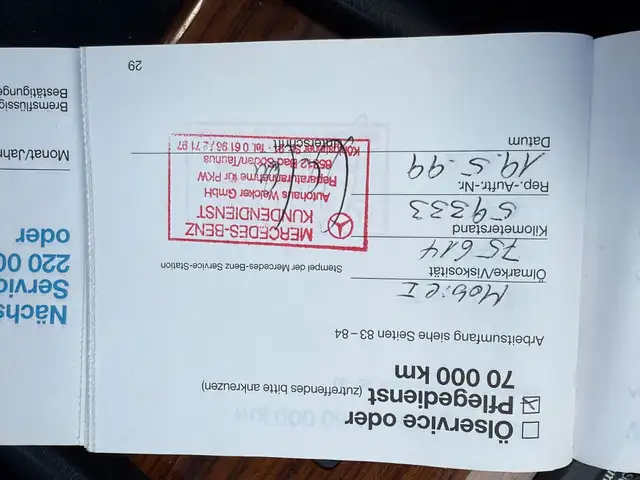 ☐ Ölservice oder
☒ Pflegedienst (zutreffendes bitte ankreuzen)
70 000 km
Arbeitsumfang siehe Seiten 83–84
Mobil 1
Ölmarke/Viskosität
75614
Kilometerstand
59333
Rep.-Auftr.-Nr.
19.5.99
Datum
Stempel der Mercedes-Benz Service-Station
MERCEDES-BENZ
KUNDENDIENST
Autohaus Weicker GmbH
Reparaturannahme für PKW
65812 Bad Soden/Taunus
Tel. 0 61 96 / 2 71 97
Unterschrift
29
Nächs
Servic
220 00
oder
Monat/Jahr
Bremsflüssig
Bestätigunge